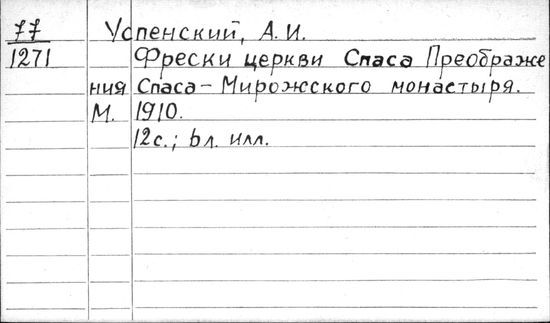 77 Успенский, А.И.
1271 Фрески церкви Спаса Преображе
ния Спаса-Мирожского монастыря.
М. 1910.
12с.; 6л. илл.